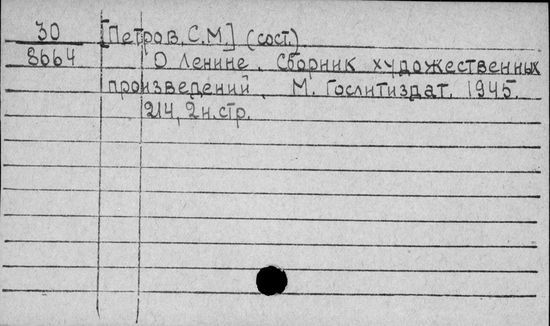 30 [Петров, С.М.] (сост.)
8664 О Ленине. Сборник художественных
произведений. М. Гослитиздат, 1945.
214, 2 н. стр.